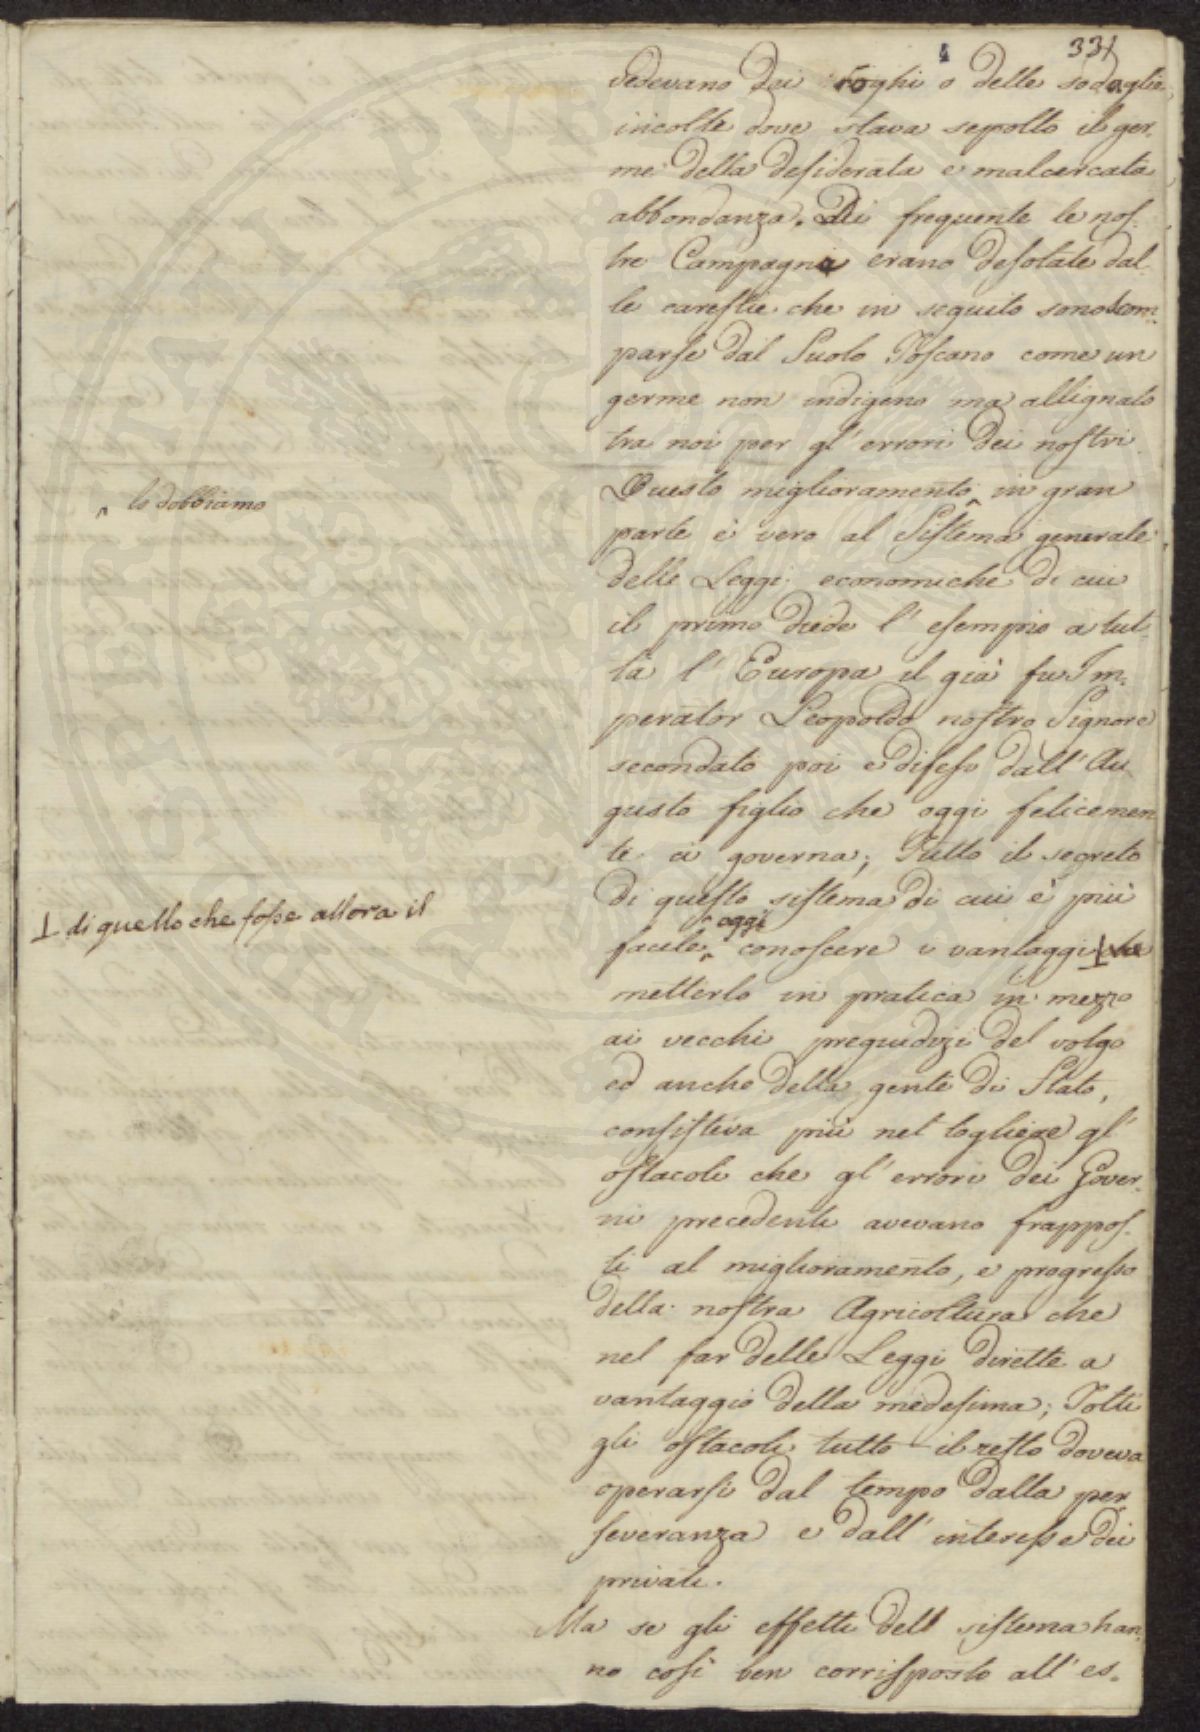 331
vedevano dei roghi o delle sodaglie
incolte dove stava sepolto il ger-
me della desiderata e malcercata
abbondanza. Di frequente le nos-
tre Campagne erano desolate dal-
le carestie che in seguito sono scom-
parse dal Suolo Toscano come un
germe non indigeno ma allignato
tra noi per gl' errori dei nostri.
Questo miglioramento ^ in gran
^ lo dobbiamo
parte è vero al Sistema generale
delle Leggi economiche di cui
il primo diede l' esempio a tut-
ta l' Europa il già fu Im-
perator Leopoldo nostro Signore
secondato poi e difeso dall' Au
gusto figlio che oggi felicemen
te ci governa; Tutto il segreto
di questo sistema di cui è più
^ oggi
facile ^ conoscere i vantaggi ⊥
⊥ di quello che fosse allora il
metterlo in pratica in mezzo
ai vecchi pregiudizi del volgo
ed anche della gente di Stato,
consisteva più nel togliere gl'
ostacoli che gl' errori dei Gover-
ni precedenti avevano frappos-
ti al miglioramento, e progresso
della nostra Agricoltura che
nel far delle Leggi dirette a
vantaggio della medesima; Tolti
gli ostacoli tutto il resto doveva
operarsi dal tempo dalla per
severanza e dall' interesse dei
privati.
Ma se gli effetti del sistema han
no così ben corrisposto all' es-